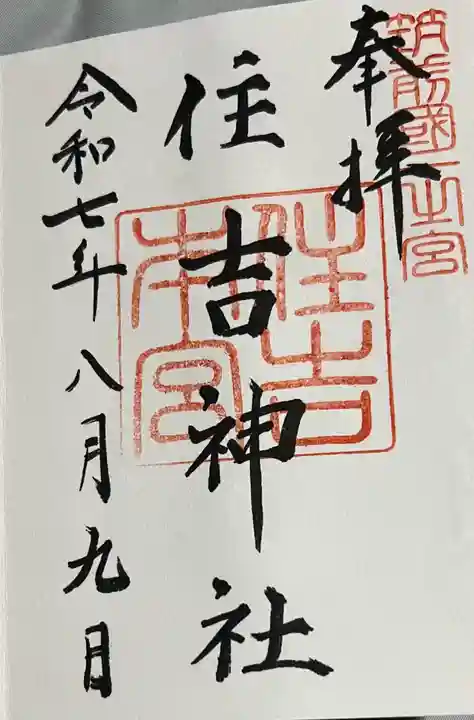 筑前國一之宮
奉拝
住吉神社
住吉
本宮
令和七年八月九日